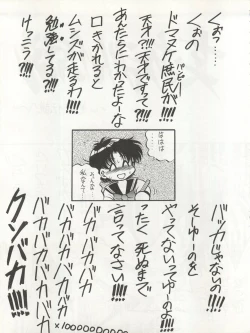 くぉっ……
くぉの
ドマヌケ庶民が!!!!
天才?!!!天才ですって?!!!!
あったらにわかったよーな
口きかれると
ムシズが走るわ!!!!
勉強してる?!!!!
けっこう!!!!
なははは
みんな
私なん…
バカじゃないの!!!!
そーゆーのを
やってないってゆーのよ!!!!
ったく死ぬまで
言ってなさい!!!!
バカバカバカバカ
バカバカバカバカ
バカバカバカバカ
クソバカ!!!!
×10000000000